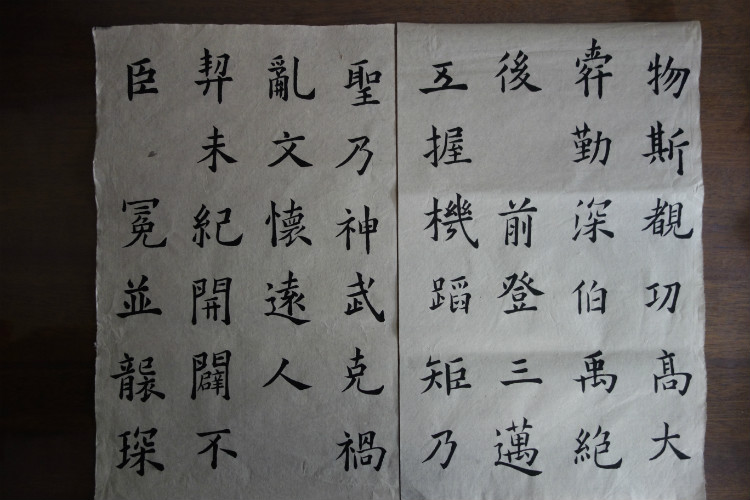 物斯覩功高大
舜勤深伯禹絕
後 前登三邁
五握機蹈矩乃
聖乃神武克禍
亂文懷遠人
契未紀開闢不
臣 冕並襲琛